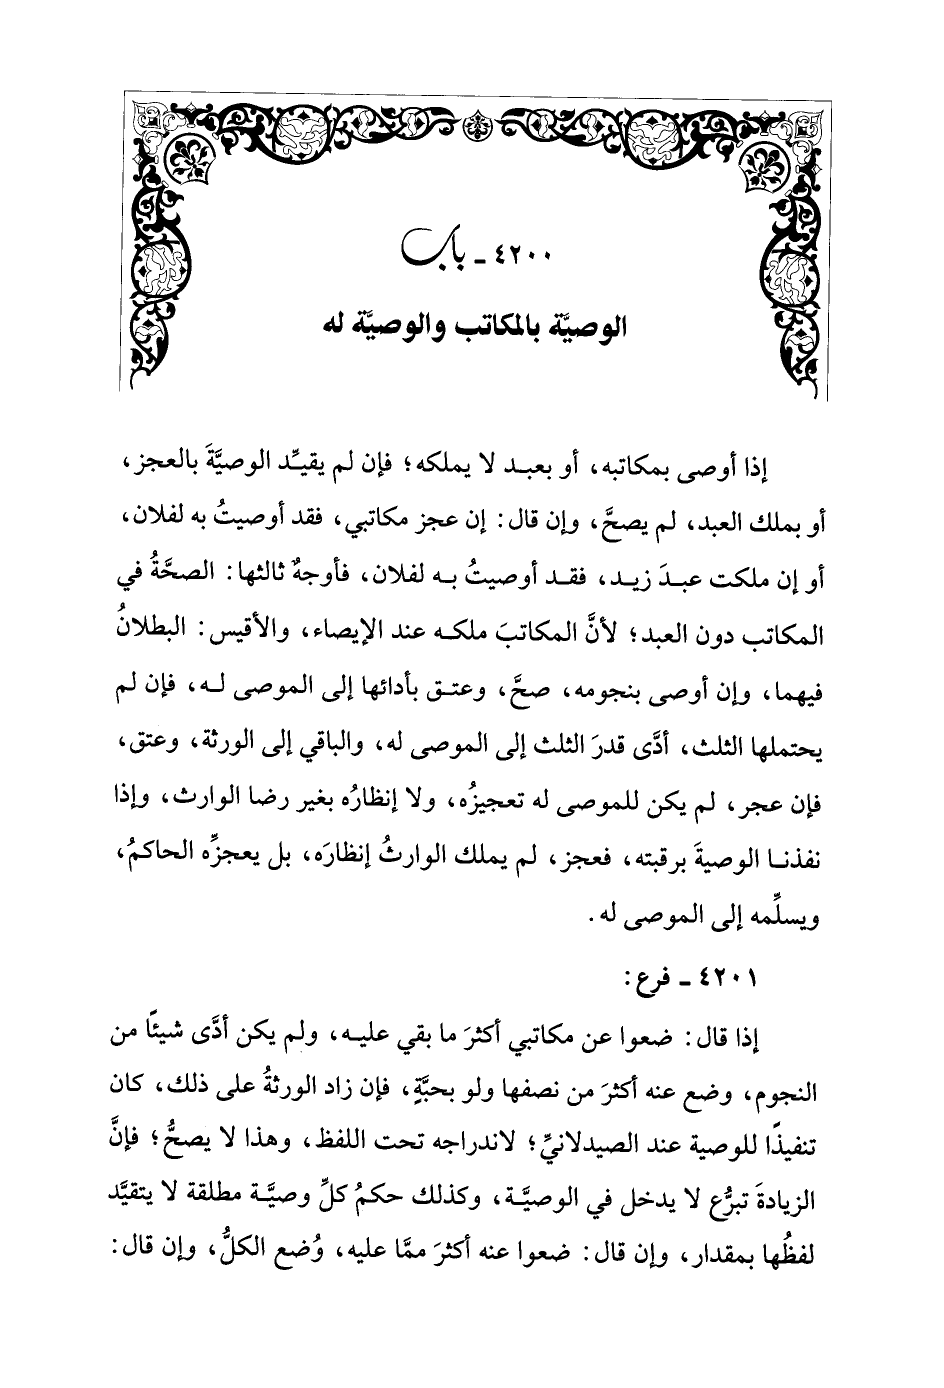 ٤٢٠٠ ـ باب
الوصيَّة بالمكاتب والوصيَّة له
إذا أوصى بمكاتبه، أو بعبد لا يملكه؛ فإن لم يقيِّد الوصيَّةَ بالعجز،
أو بملك العبد، لم يصحَّ، وإن قال: إن عجز مكاتبي، فقد أوصيتُ به لفلان،
أو إن ملكت عبدَ زيد، فقد أوصيتُ به لفلان، فأوجهٌ ثالثها: الصحَّةُ في
المكاتب دون العبد؛ لأنَّ المكاتبَ ملكه عند الإيصاء، والأقيس: البطلانُ
فيهما، وإن أوصى بنجومه، صحَّ، وعتق بأدائها إلى الموصى له، فإن لم
يحتملها الثلث، أدَّى قدرَ الثلث إلى الموصى له، والباقي إلى الورثة، وعتق،
فإن عجر، لم يكن للموصى له تعجيزُه، ولا إنظارُه بغير رضا الوارث، وإذا
نفذنا الوصيةَ برقبته، فعجز، لم يملك الوارثُ إنظارَه، بل يعجزِّه الحاكمُ،
ويسلِّمه إلى الموصى له.
٤٢٠١ ـ فرع:
إذا قال: ضعوا عن مكاتبي أكثرَ ما بقي عليه، ولم يكن أدَّى شيئًا من
النجوم، وضع عنه أكثرَ من نصفها ولو بحبَّةٍ، فإن زاد الورثةُ على ذلك، كان
تنفيذًا للوصية عند الصيدلانيِّ؛ لاندراجه تحت اللفظ، وهذا لا يصحُّ؛ فإنَّ
الزيادةَ تبرُّع لا يدخل في الوصيَّة، وكذلك حكمُ كلِّ وصيَّة مطلقة لا يتقيَّد
لفظُها بمقدار، وإن قال: ضعوا عنه أكثرَ ممَّا عليه، وُضع الكلُّ، وإن قال: